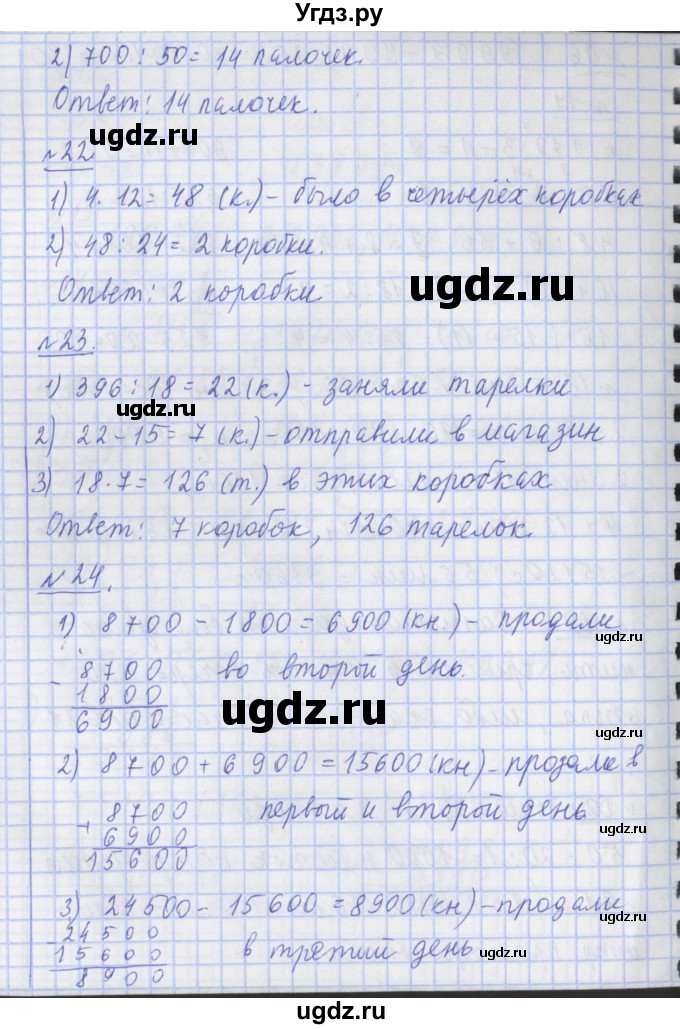 Угдз.ру
2) 700 : 50 = 14 палочек.
Ответ: 14 палочек.
ugdz.ru
№22
1) 4 · 12 = 48 (к.) – было в четырёх коробках
2) 48 : 24 = 2 коробки.
ugdz.ru
Ответ: 2 коробки
№23.
1) 396 : 18 = 22 (к.) – заняли тарелки
ugdz.ru
2) 22 – 15 = 7 (к.) – отправили в магазин
3) 18 · 7 = 126 (т.) в этих коробках
Ответ: 7 коробок, 126 тарелок.
ugdz.ru
№24.
1) 8700 – 1800 = 6900 (кн.) – продали
ugdz.ru
- 8700 во второй день.
1800
ugdz.ru
6900
2) 8700 + 6900 = 15600 (кн) – прозали в
8700 первый и второй день
+ 6900
ugdz.ru
15600
3) 24500 – 15600 = 8900 (кн) – продали
ugdz.ru
- 24500
15600 в третий день
8900
ugdz.ru